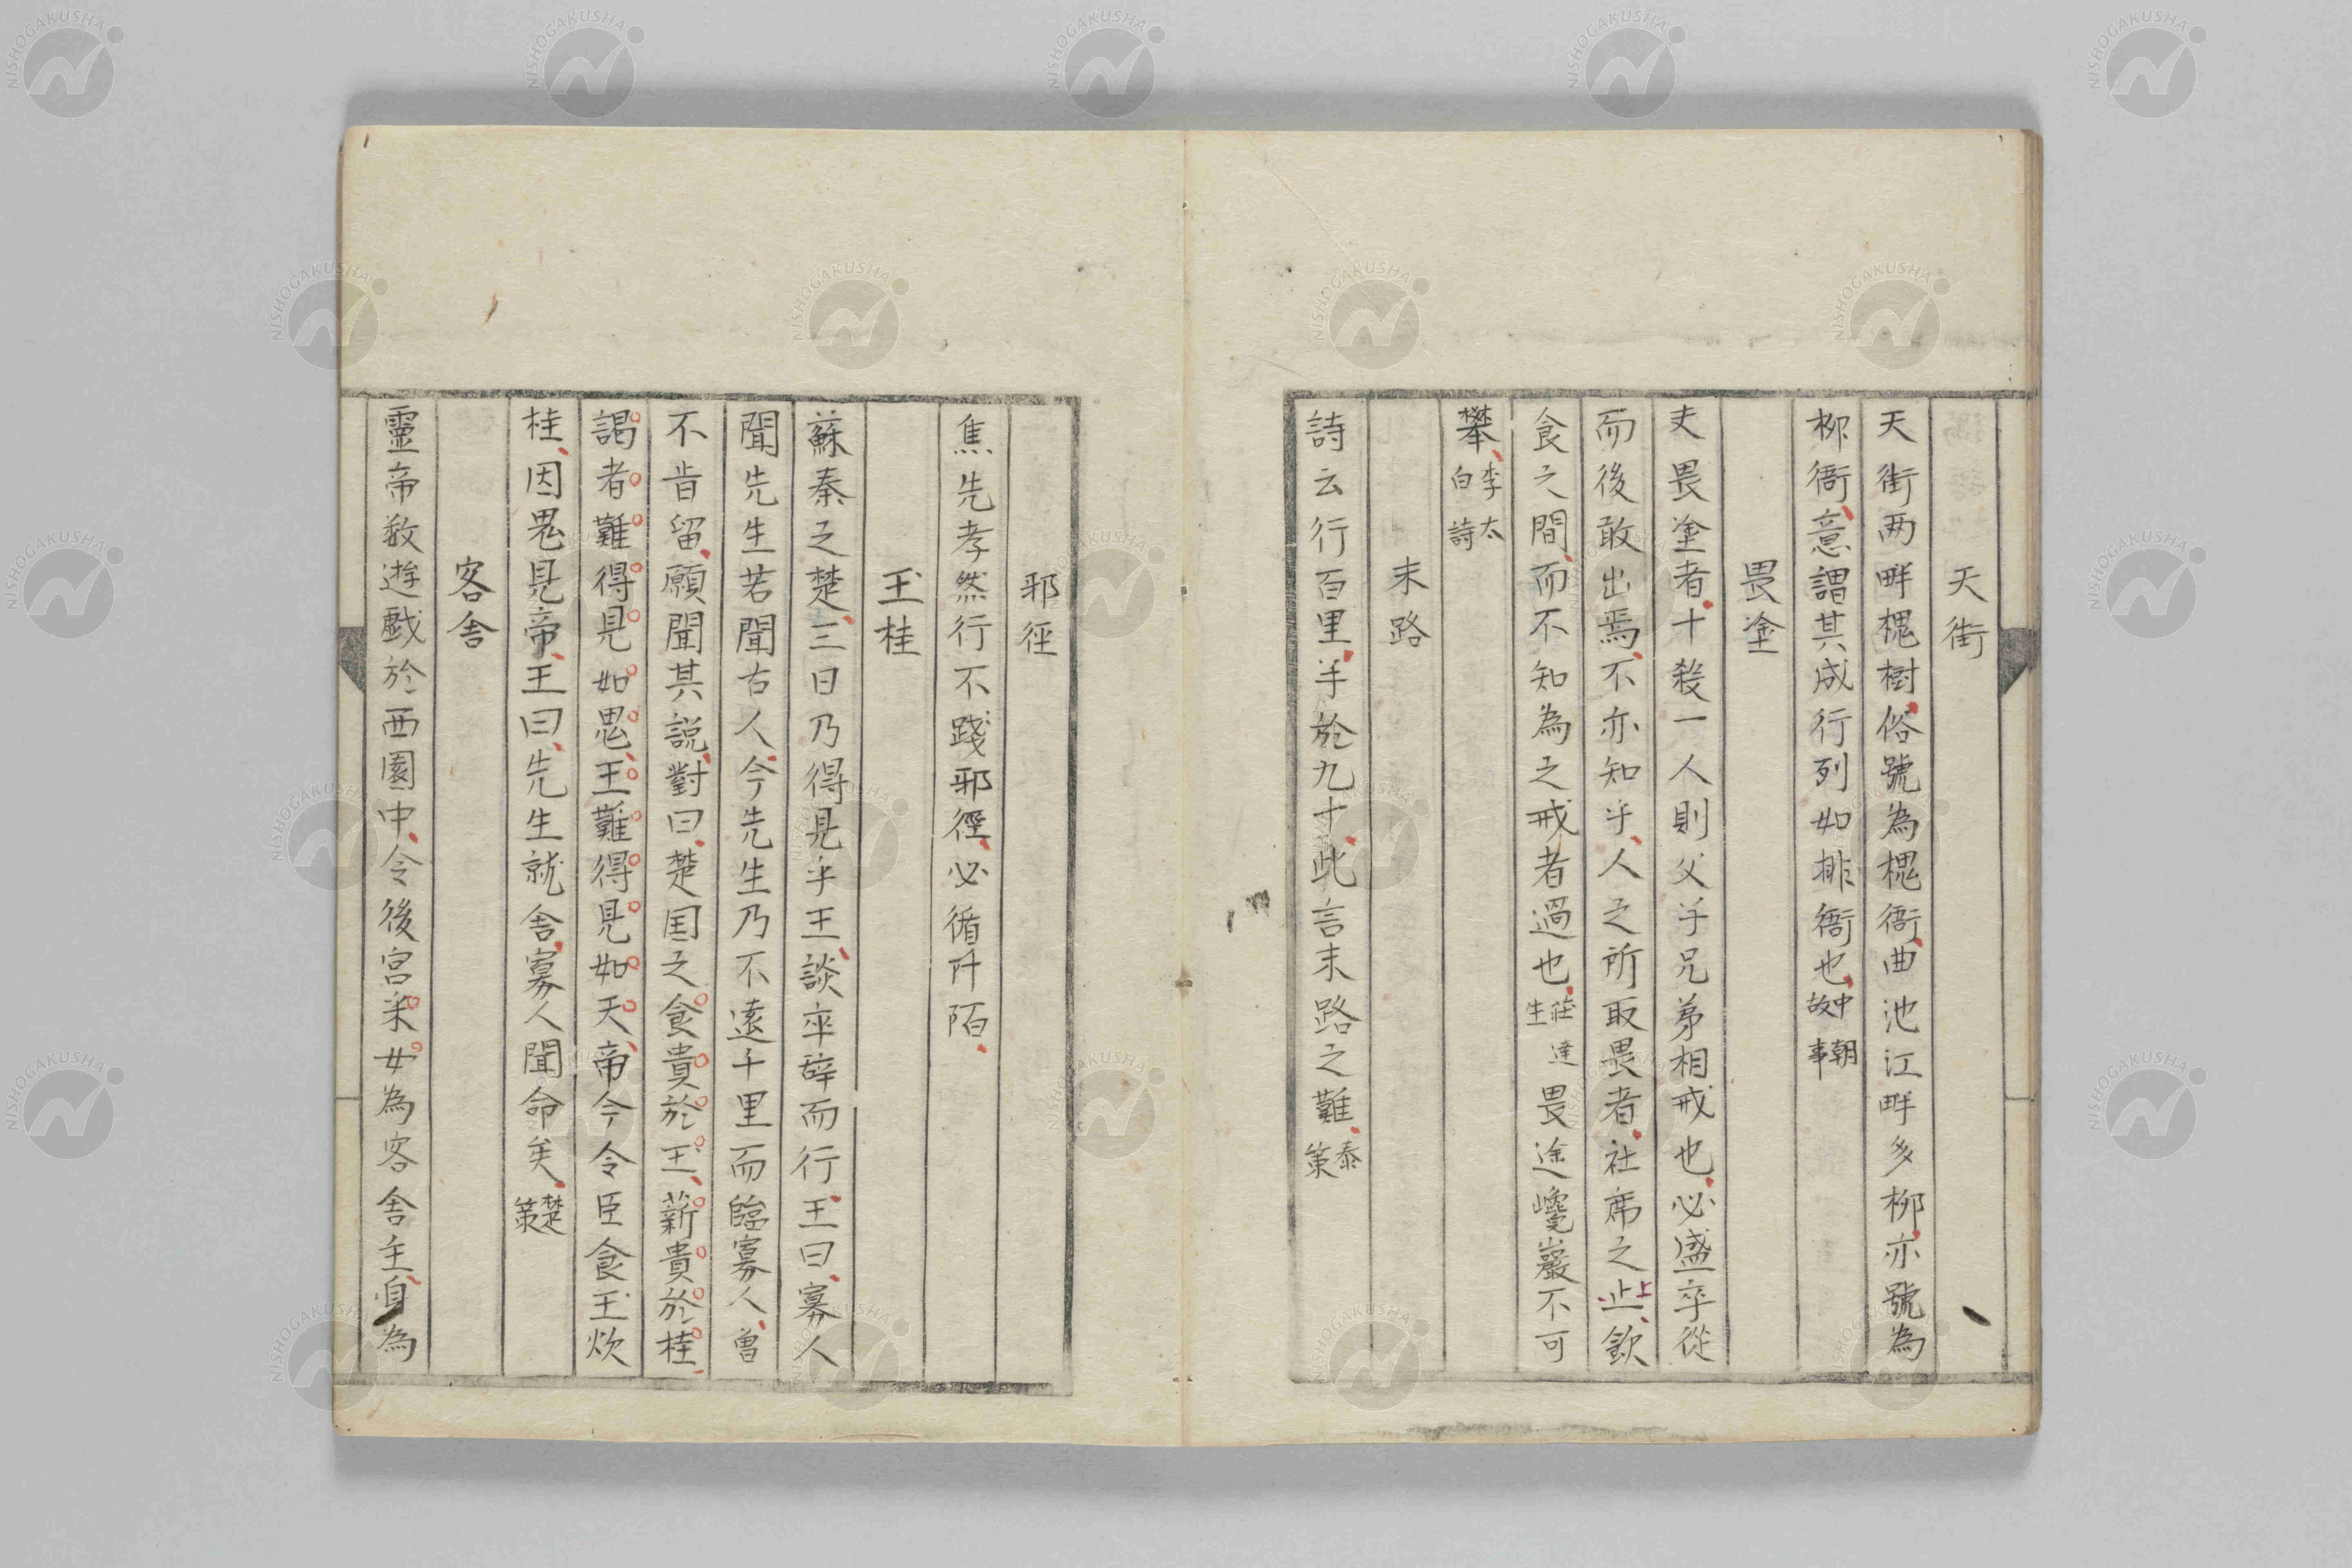 天街
天街两畔槐樹俗號為槐衙曲池江畔多柳亦號為
柳衙意謂其成行列如排衙也中朝故事
畏塗
夫畏塗者十殺一人則父子兄弟相戒也必盛卒從
而後敢出焉不亦知乎人之所取畏者衽席之上飲
食之間而不知為之戒者過也莊生達 畏途巉巖不可
攀李太白詩
末路
詩云行百里半於九十此言末路之難秦策
邪徑
焦先孝然行不踐邪徑必循阡陌
玉桂
蘇秦之楚三日乃得見乎王談卒辭而行王曰寡人
聞先生若聞古人今先生乃不遠千里而臨寡人曾
不肯留願聞其説對曰楚国之食貴於玉薪貴於桂
謁者難得見如鬼王難得見如天帝今令臣食玉炊
桂因鬼見帝王曰先生就舍寡人聞命矣楚策
客舍
靈帝数遊戯於西園中令後宮采女為客舍主身為
NISHOGAKUSHA